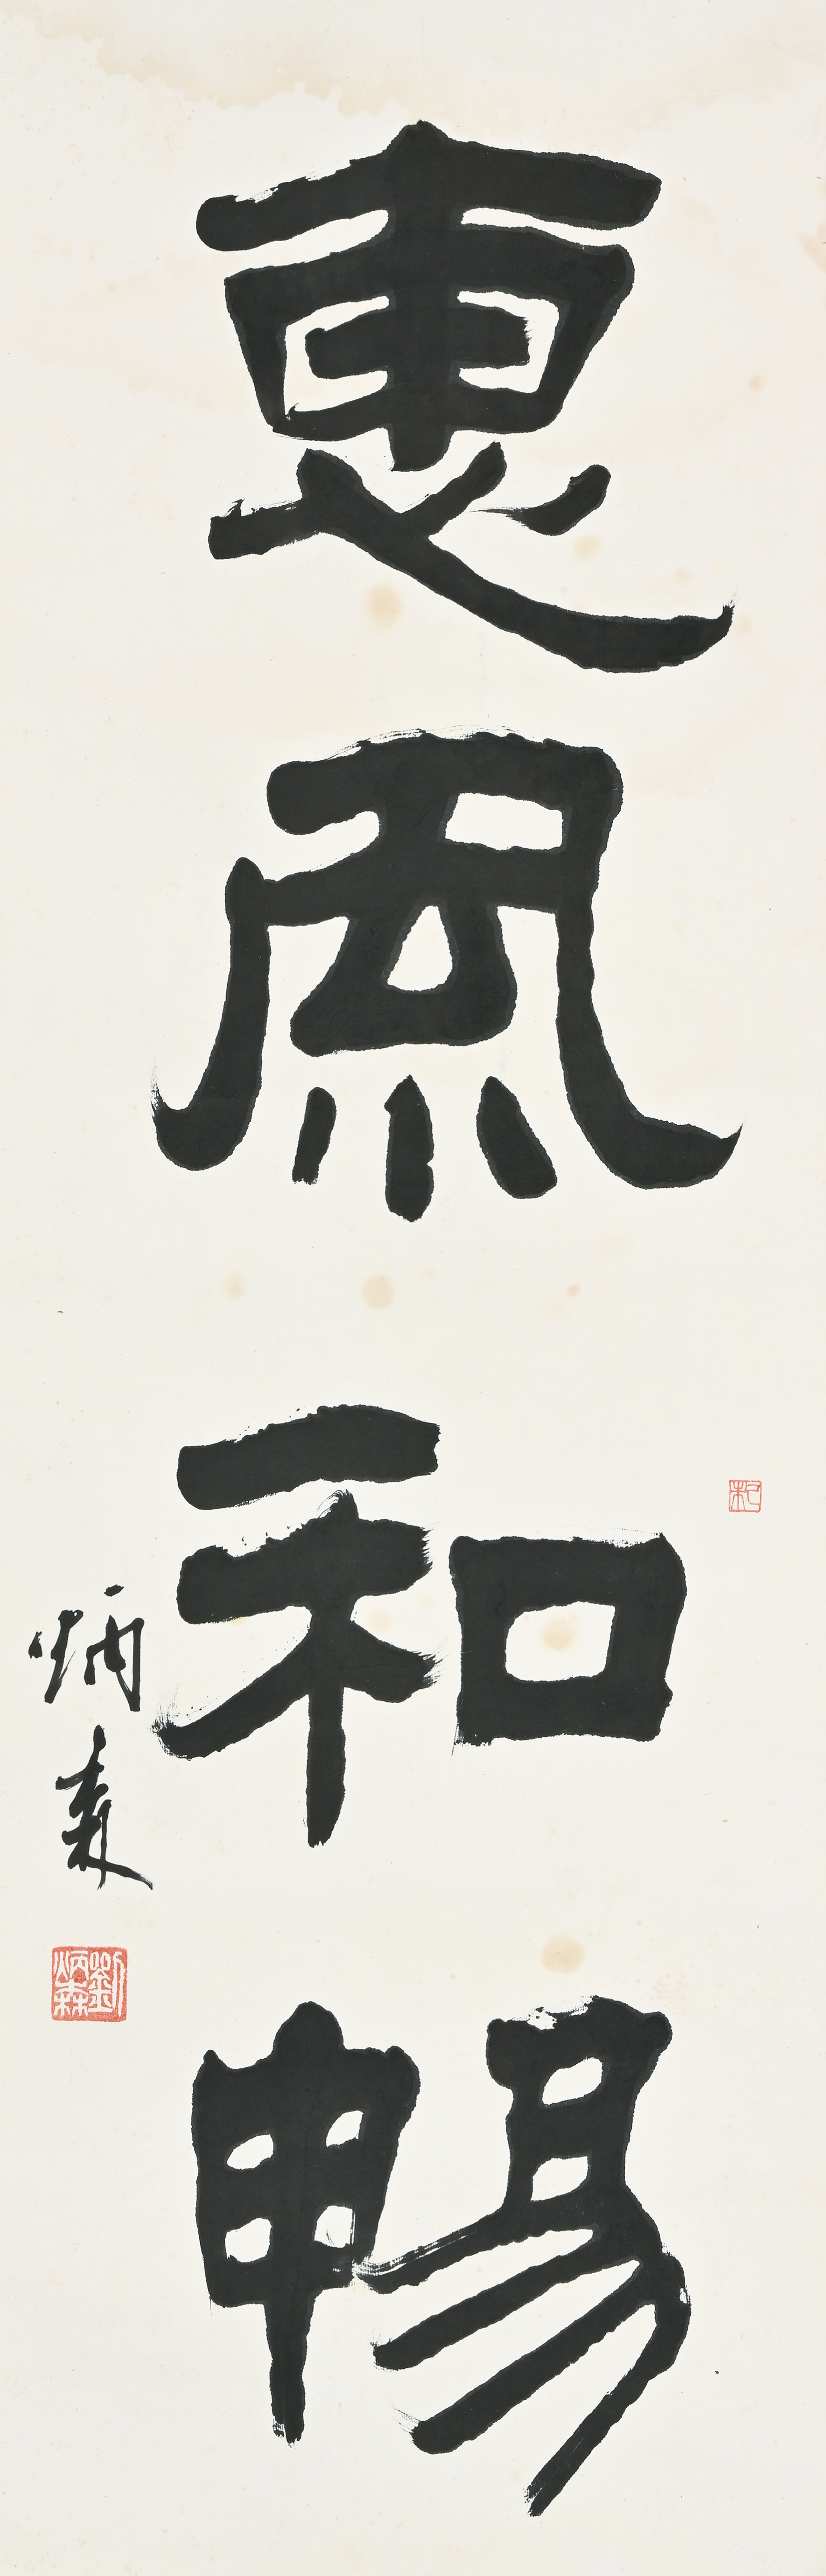 惠風和暢
炳森
劉炳森